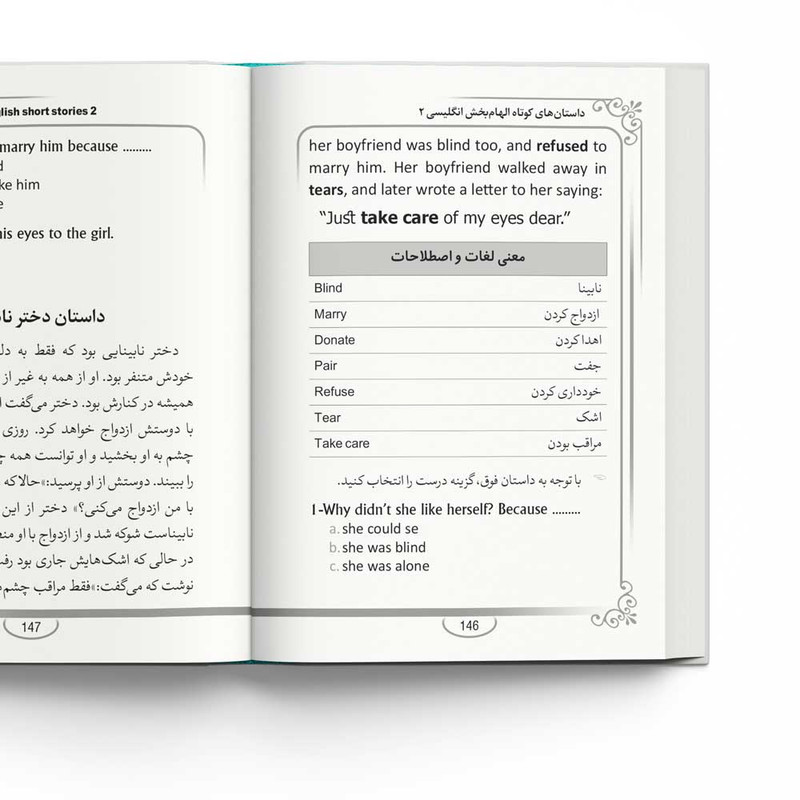 داستان‌های کوتاه الهام‌بخش انگلیسی ۲
her boyfriend was blind too, and refused to
marry him. Her boyfriend walked away in
tears, and later wrote a letter to her saying:
“Just take care of my eyes dear.”
معنی لغات و اصطلاحات
Blind نابینا
Marry ازدواج کردن
Donate اهدا کردن
Pair جفت
Refuse خودداری کردن
Tear اشک
Take care مراقب بودن
با توجه به داستان فوق، گزینه درست را انتخاب کنید.
1-Why didn’t she like herself? Because .........
a. she could se
b. she was blind
c. she was alone
146
short stories 2
marry him because .........
him
eyes to the girl.
داستان دختر
دختر نابینایی بود که فقط به
خودش متنفر بود. او از همه به غیر از
همیشه در کنارش بود. دختر می‌گفت
با دوستش ازدواج خواهد کرد. روزی
چشم به او بخشید و او توانست همه
را ببیند. دوستش از او پرسید:»حالا که
با من ازدواج می‌کنی؟» دختر از این
نابیناست شوکه شد و از ازدواج با او
در حالی که اشک‌هایش جاری بود
نوشت که می‌گفت:»فقط مراقب
147